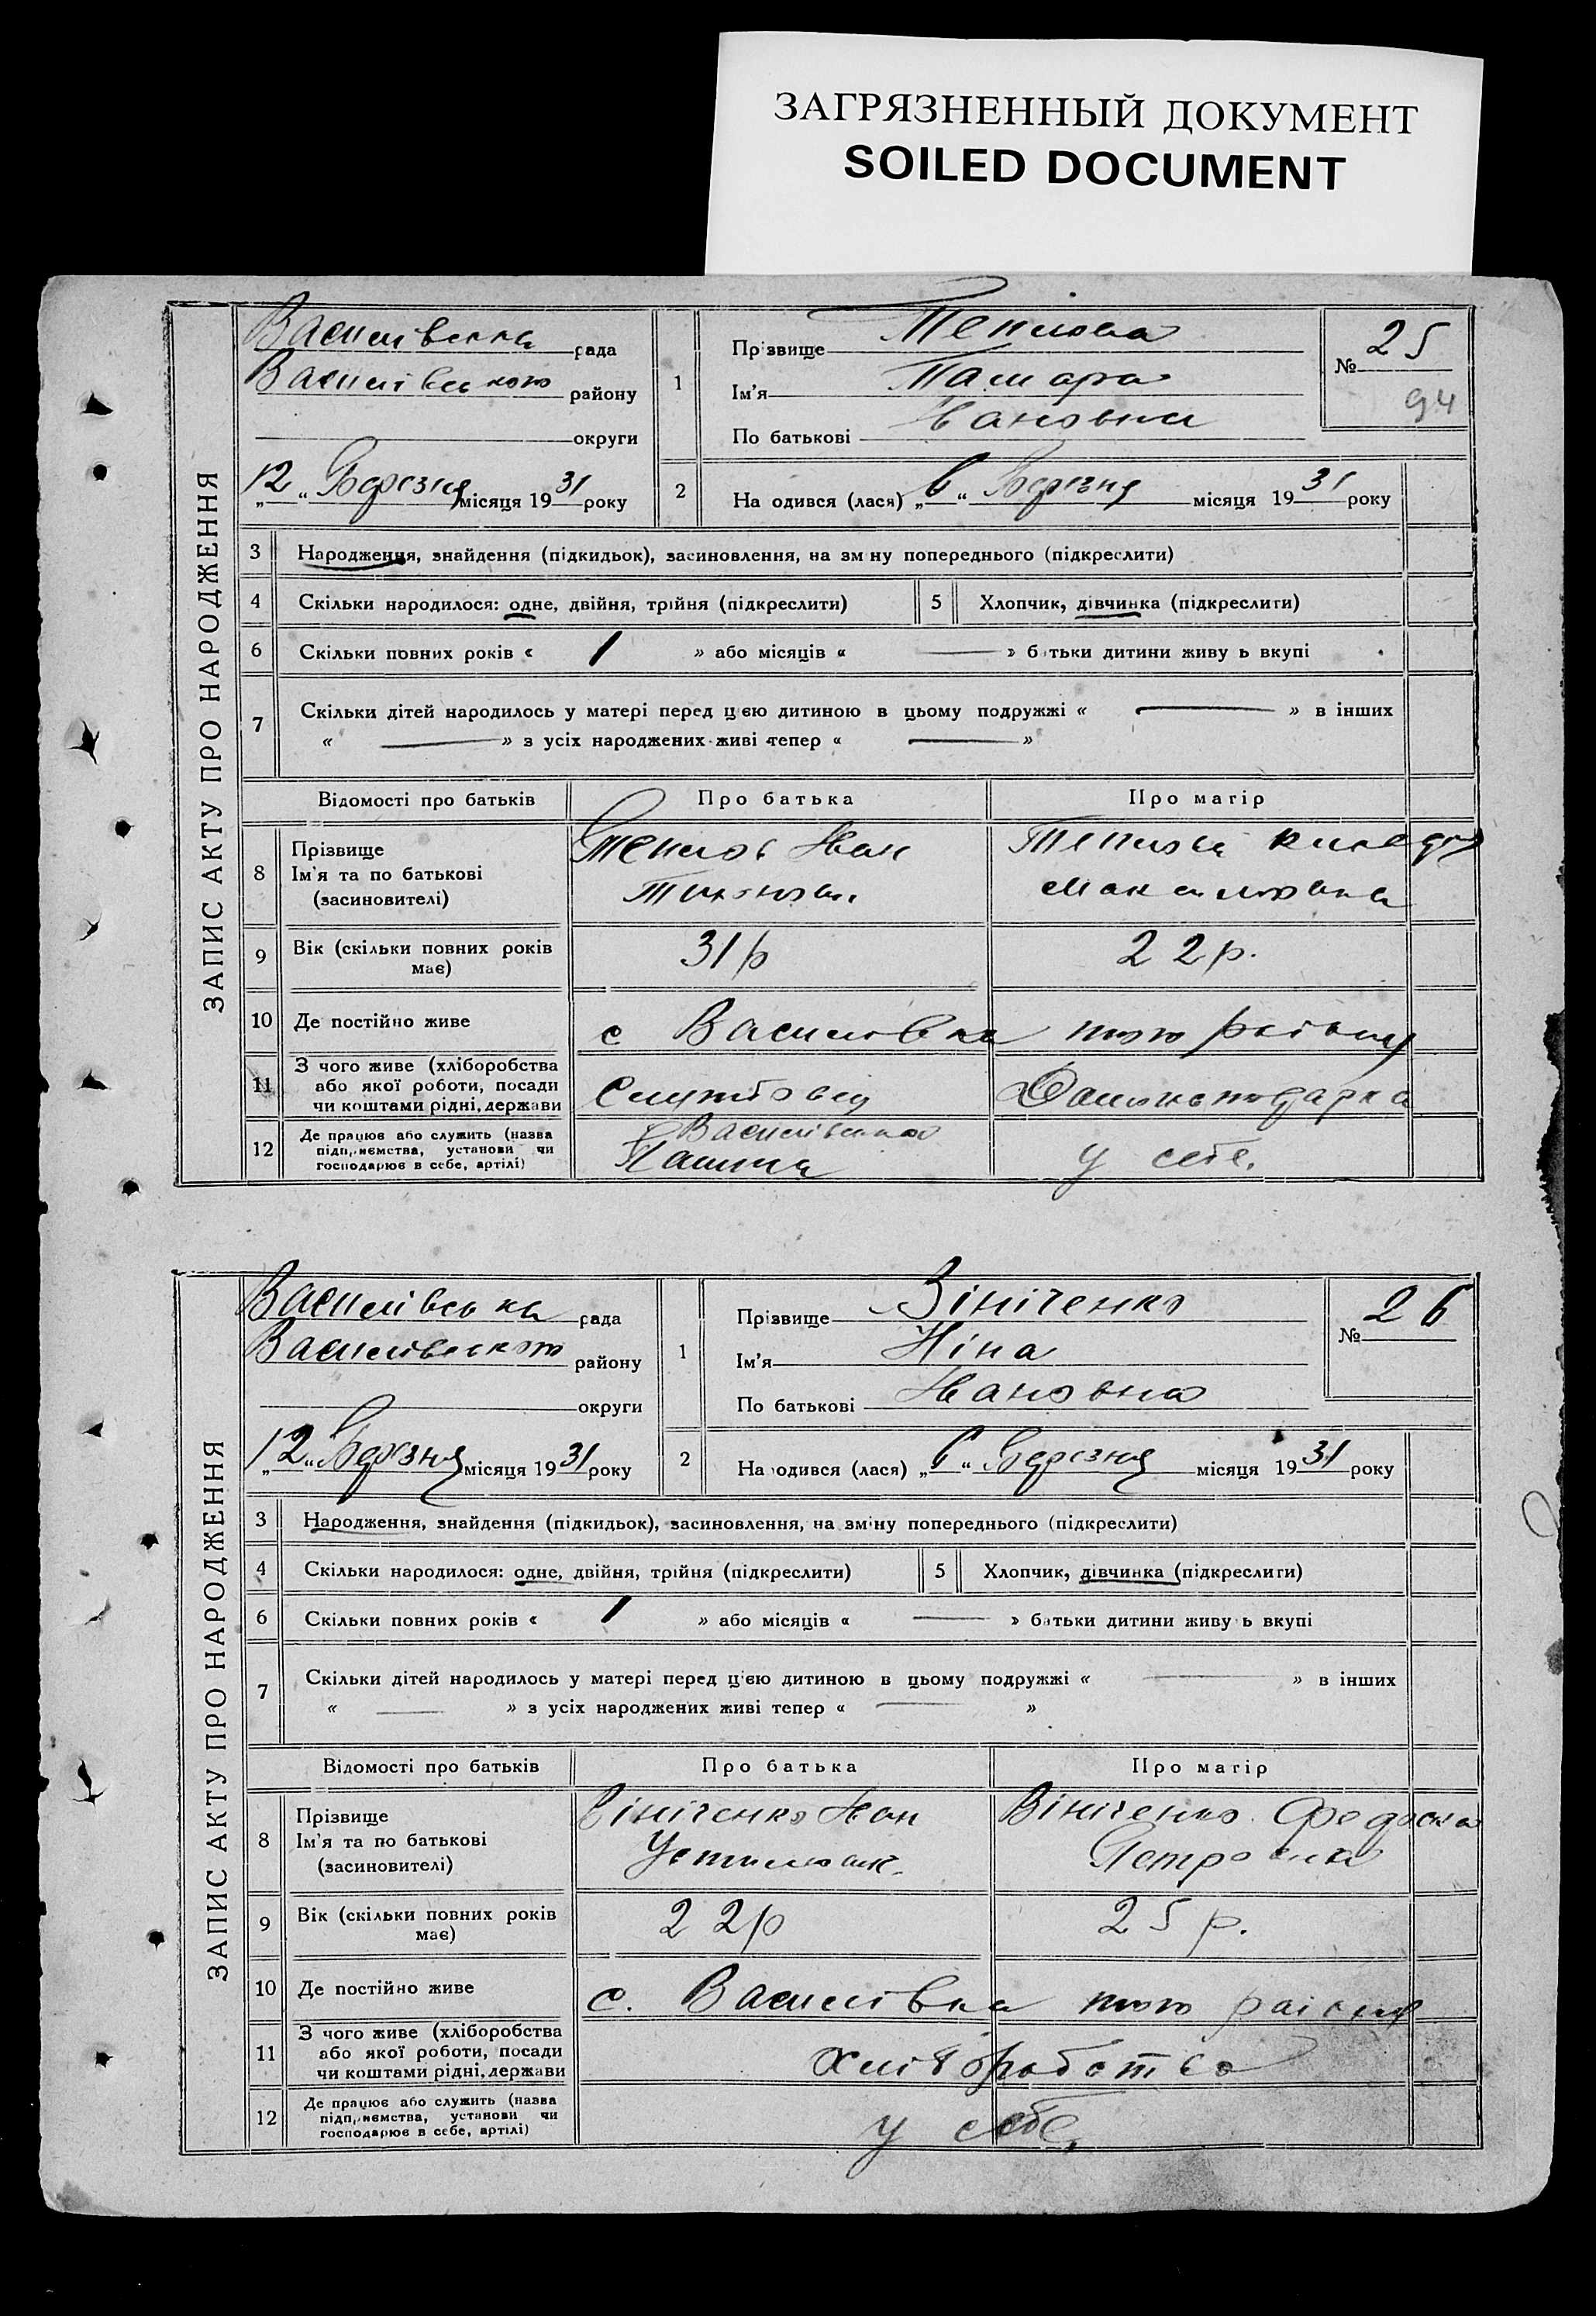 ЗАГРЯЗНЕННЫЙ ДОКУМЕНТ
SOILED DOCUMENT
ЗАПИС АКТУ ПРО НАРОДЖЕННЯ
Василівська рада
Василівського району
округи
„12“ Березня місяця 1931 року
1
Прізвище Теплова
Ім'я Тамара
По батькові Івановна
№ 25
94
2
На одився (лася) „6“ Березня місяця 1931 року
3 Народження, знайдення (підкидьок), засиновлення, на зм ну попереднього (підкреслити)
4 Скільки народилося: одне, двійня, трійня (підкреслити) 5 Хлопчик, дівчинка (підкреслити)
6 Скільки повних років « 1 » або місяців « — » б тьки дитини живу ь вкупі
7 Скільки дітей народилось у матері перед цією дитиною в цьому подружжі « — » в інших
« — » з усіх народжених живі тепер « — »
Відомості про батьків Про батька Про матір
8 Прізвище
Ім'я та по батькові
(засиновителі)
Теплов Іван
Теплова
Максимовна
9 Вік (скільки повних років має) 31 р 22 р.
10 Де постійно живе с Василівка того району
11 З чого живе (хліборобства
або якої роботи, посади
чи коштами рідні, держави
Службовец Домогосподарка
12 Де працює або служить (назва
підприємства, установи чи
господарює в себе, артілі)
Василівська
у себе.
ЗАПИС АКТУ ПРО НАРОДЖЕННЯ
Василівська рада
Василівського району
округи
„12“ Березня місяця 1931 року
1
Прізвище Вініченко
Ім'я Ніна
По батькові Івановна
№ 26
2
На одився (лася) „6“ Березня місяця 1931 року
3 Народження, знайдення (підкидьок), засиновлення, на зміну попереднього (підкреслити)
4 Скільки народилося: одне, двійня, трійня (підкреслити) 5 Хлопчик, дівчинка (підкреслити)
6 Скільки повних років « 1 » або місяців « — » батьки дитини живу ь вкупі
7 Скільки дітей народилось у матері перед цією дитиною в цьому подружжі « — » в інших
« — » з усіх народжених живі тепер « — »
Відомості про батьків Про батька Про матір
8 Прізвище
Ім'я та по батькові
(засиновителі)
Вініченко Іван
Вініченко Федоска
Петровна
9 Вік (скільки повних років має) 22 р 25 р.
10 Де постійно живе с. Василівка того району
11 З чого живе (хліборобства
або якої роботи, посади
чи коштами рідні, держави
Хліборобство
12 Де працює або служить (назва
підприємства, установи чи
господарює в себе, артілі)
у себе,